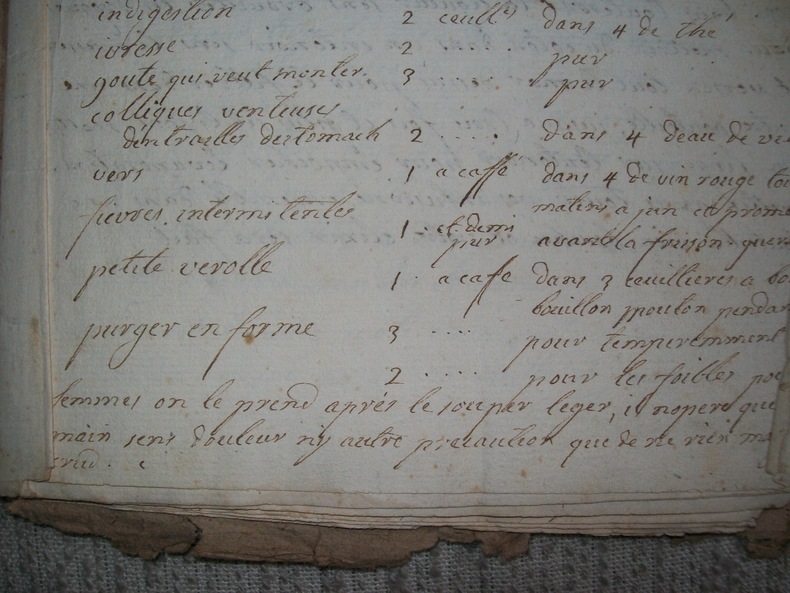 indigestion 2 ceull<sup>es</sup> dans 4 de thé
ivresse 2 . . pur
goute qui veut monter 3 . . . . pur
colliques venteuses
dentrailles destomach 2 . . . . dans 4 deau de vie
vers 1 a caffé dans 4 de vin rouge
matins a jun et
fievres intermitentes 1 et demi avant la frison
pur
petite verolle 1 a cafe dans 3 ceuillieres a
bouillon mouton pendan
purger en forme 3 . . . . pour temperemment
2 . . . . pour les foibles
femmes on le prend aprés le souper leger, il nopere que
main sens douleur ny autre precaution que de ne rien
crud.